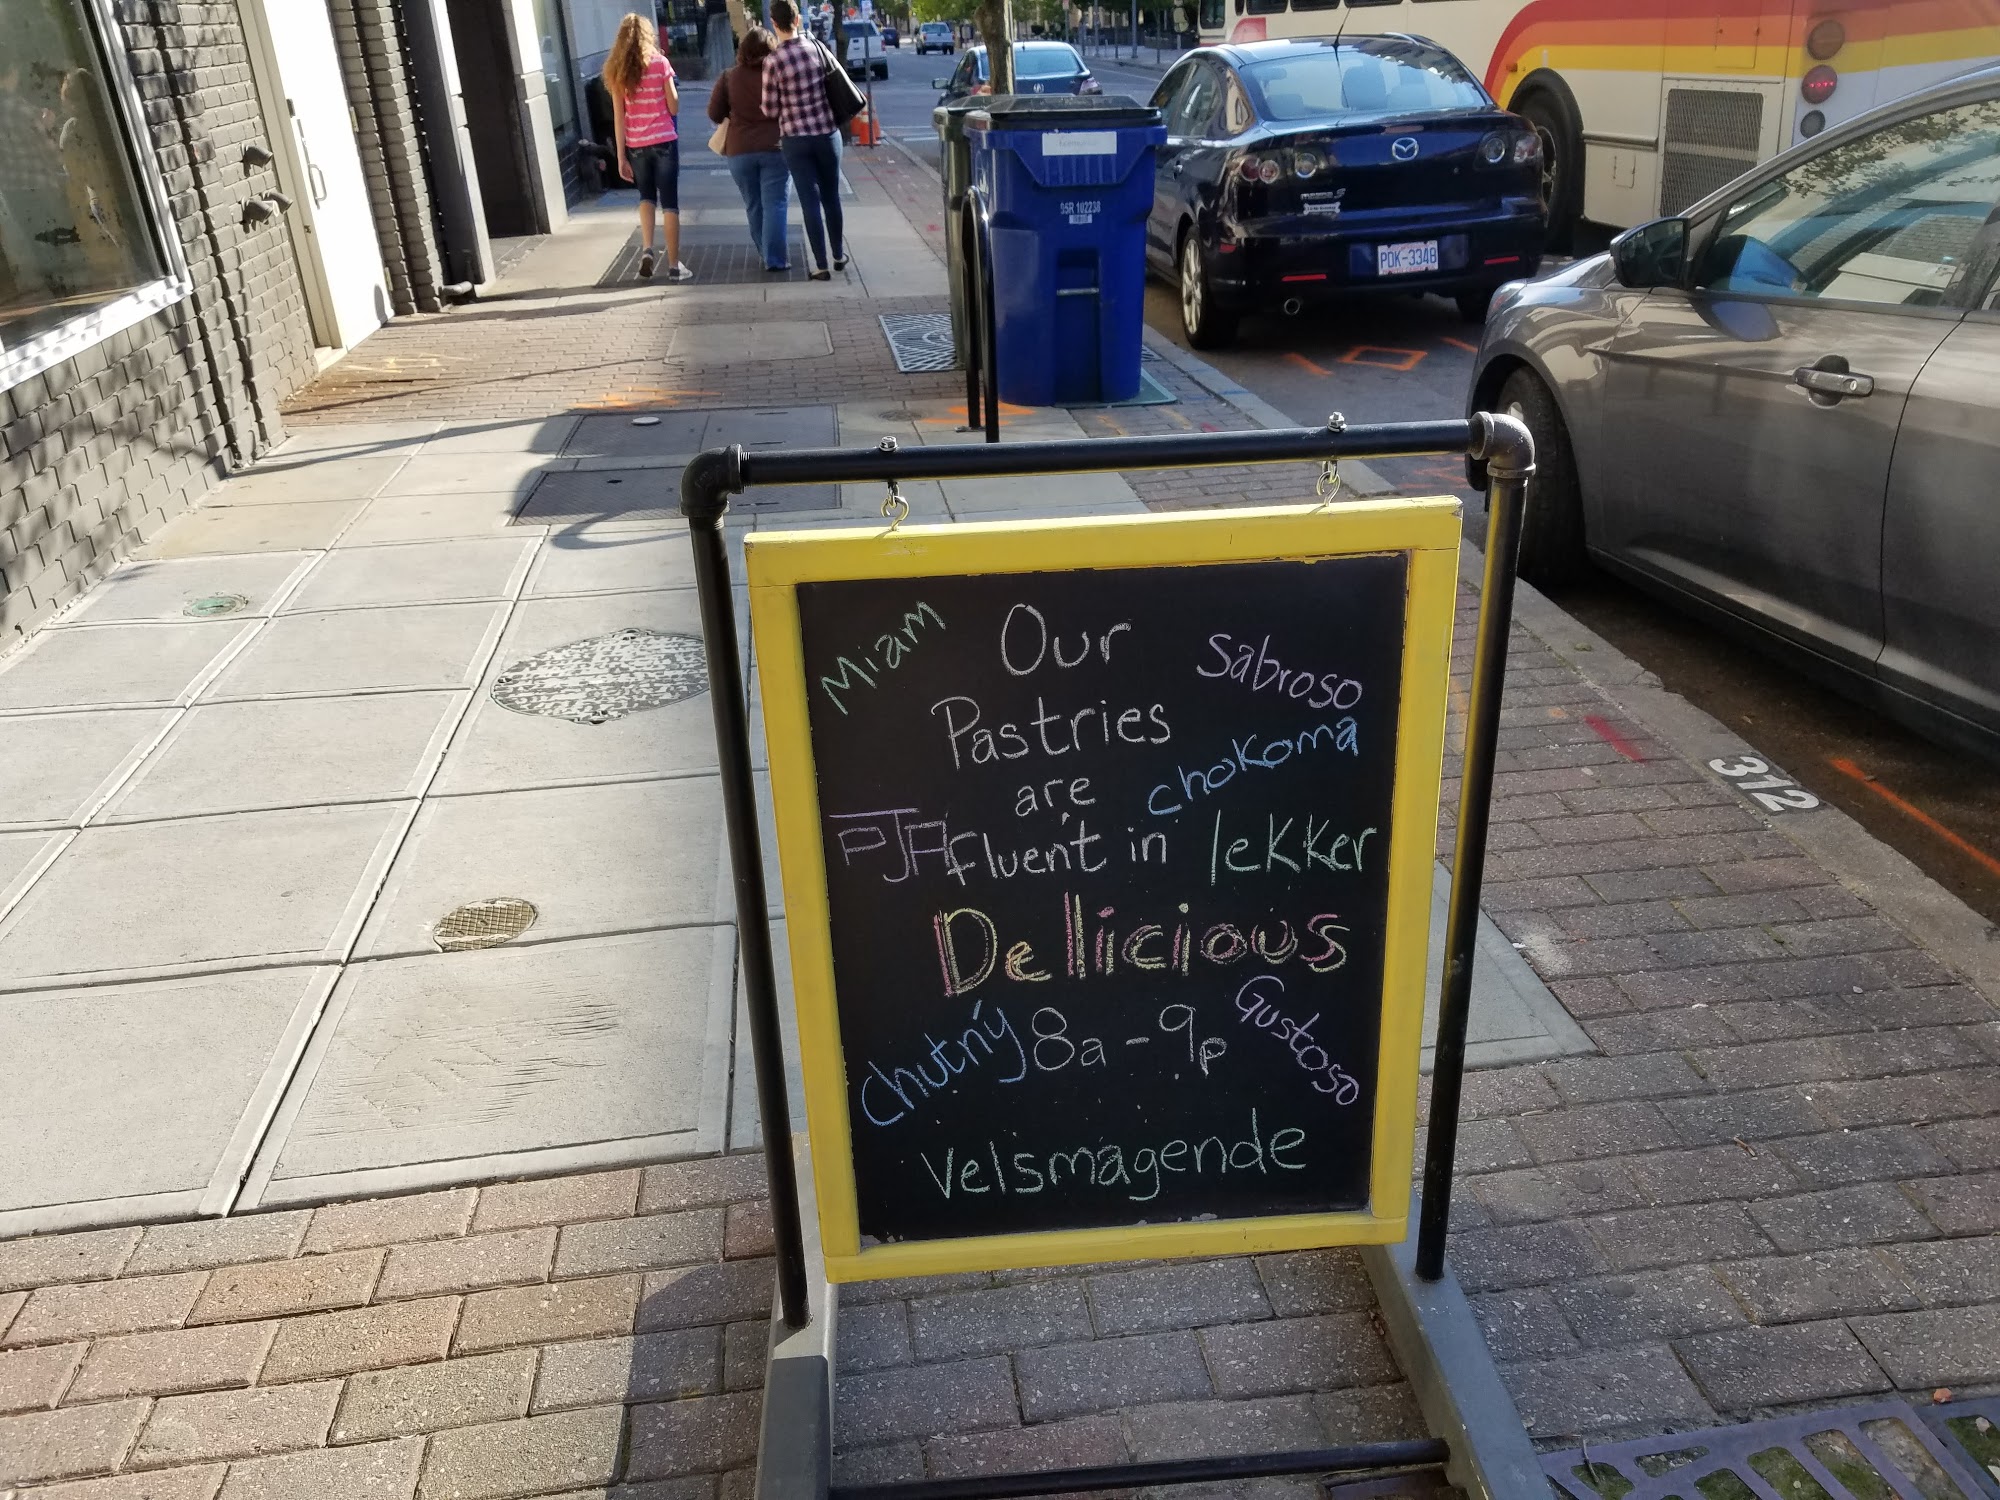 Miam
Our
Sabroso
Pastries
chokoma
are
fluent in
lekker
Dellicious
Chutný
8a - 9p
Gustoso
Velsmagende
312
95R 102238
PDK-3348